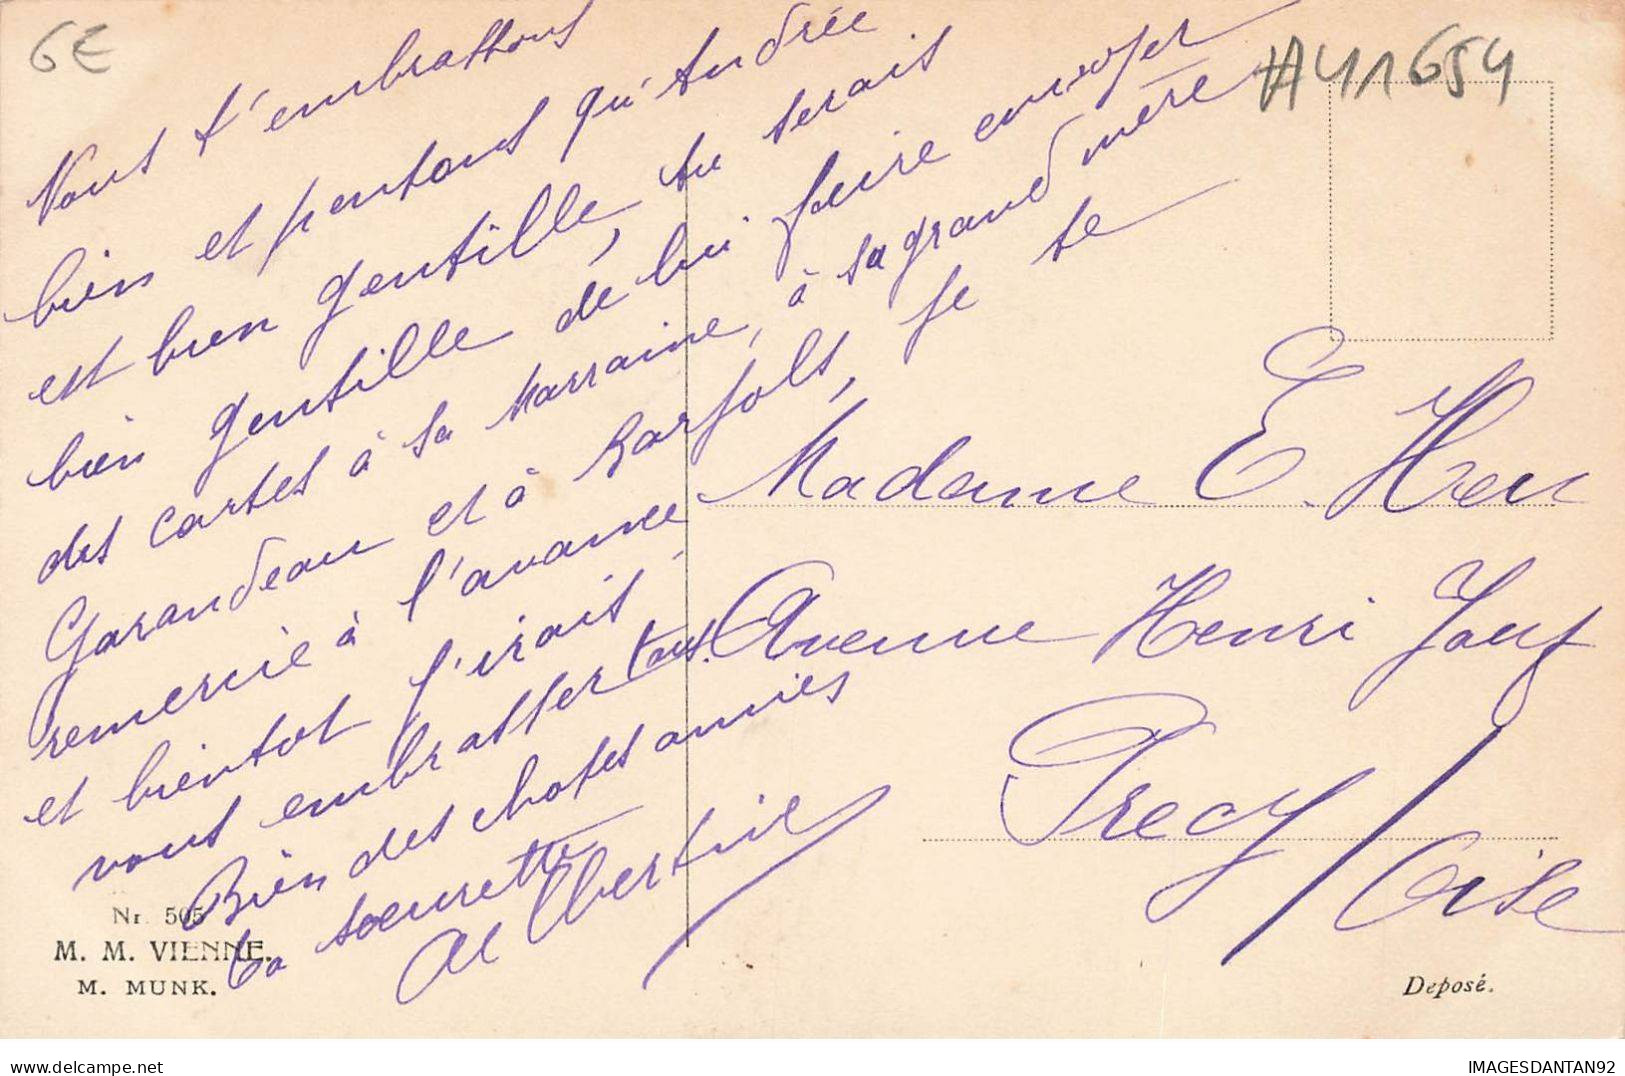 6E
#41654
Nous t'embrassons
bien et pensons qu'Andrée
est bien gentille, tu serais
bien gentille de lui faire envoyer
des cartes à sa Marraine, à sa grand mère
Garandeau et à je te
remercie à l'avance
et bientot j'irais
vous embrasser tous.
Bien des choses amies
ta soeurette
Albertine
Madame E.
Avenue Henri
Precy / Oise
Nr. 505
M. M. VIENNE.
M. MUNK.
Deposé.
delcampe.net
IMAGESDANTAN92